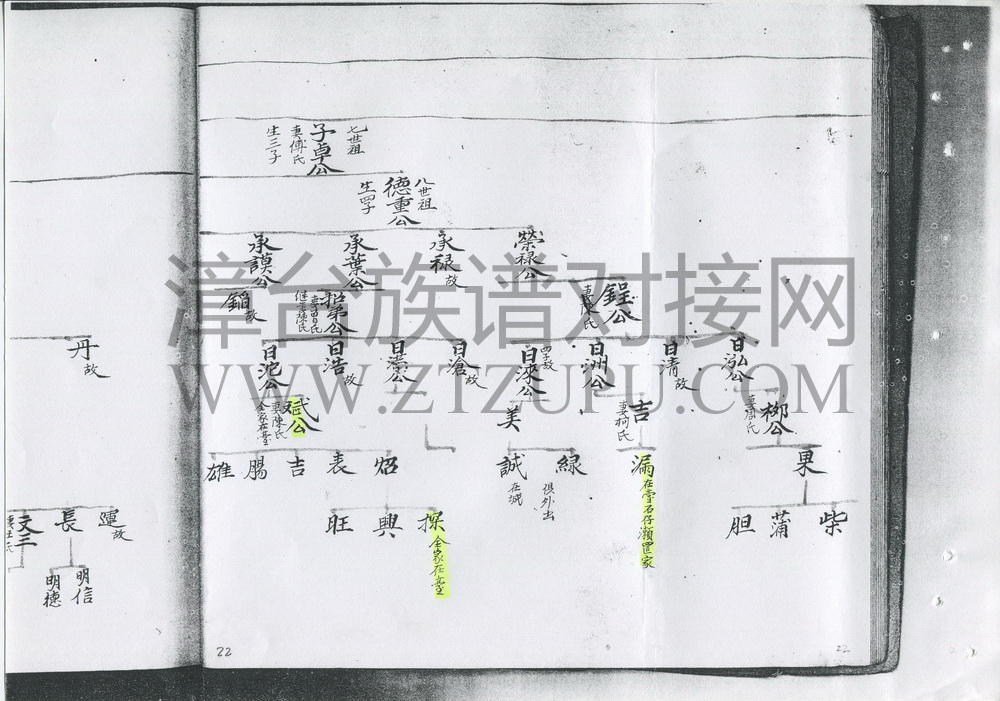 七世祖
子卓公
妻傅氏
生三子
八世祖
德重公
生四子
榮禄公
承禄 故
承葉公
承謨公
鋥公
妻陳氏
招弟公
妻曾氏
继妻
故
日泓公
日清 故
日洲公
日淶公
四子故
日滄 故
公
日浩 故
日沱公
柳公
妻周氏
吉
妻柯氏
美
斌公
妻陳氏
全家在臺
果
漏 在臺石仔瀬置家
緑
俱外出
誠
在城
炤
表
吉
腸
雄
柴
蒲
胆
探 全家在臺
興
旺
丹 故
運 故
長
文三
明信
明德
22
22
漳台族谱对接网
WWW.ZTZUPU.COM